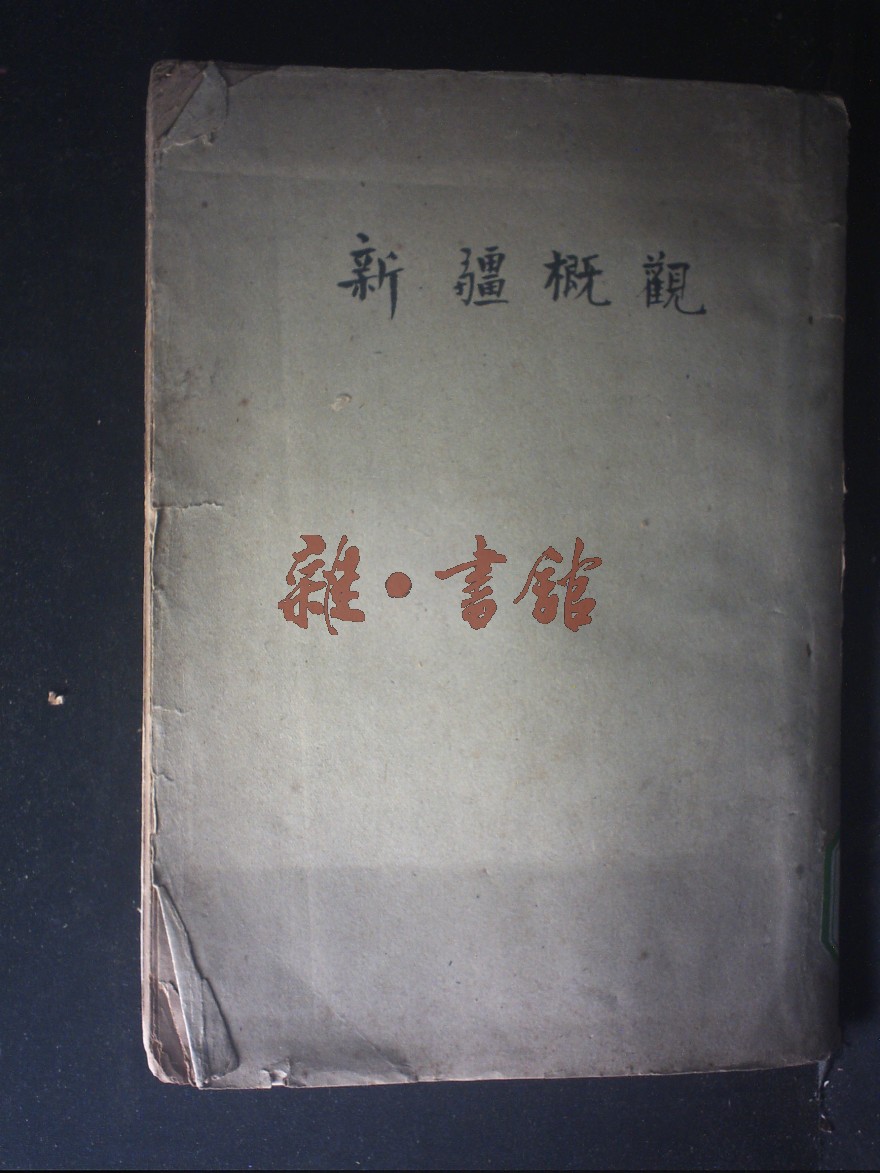 新疆概觀
雜·書館